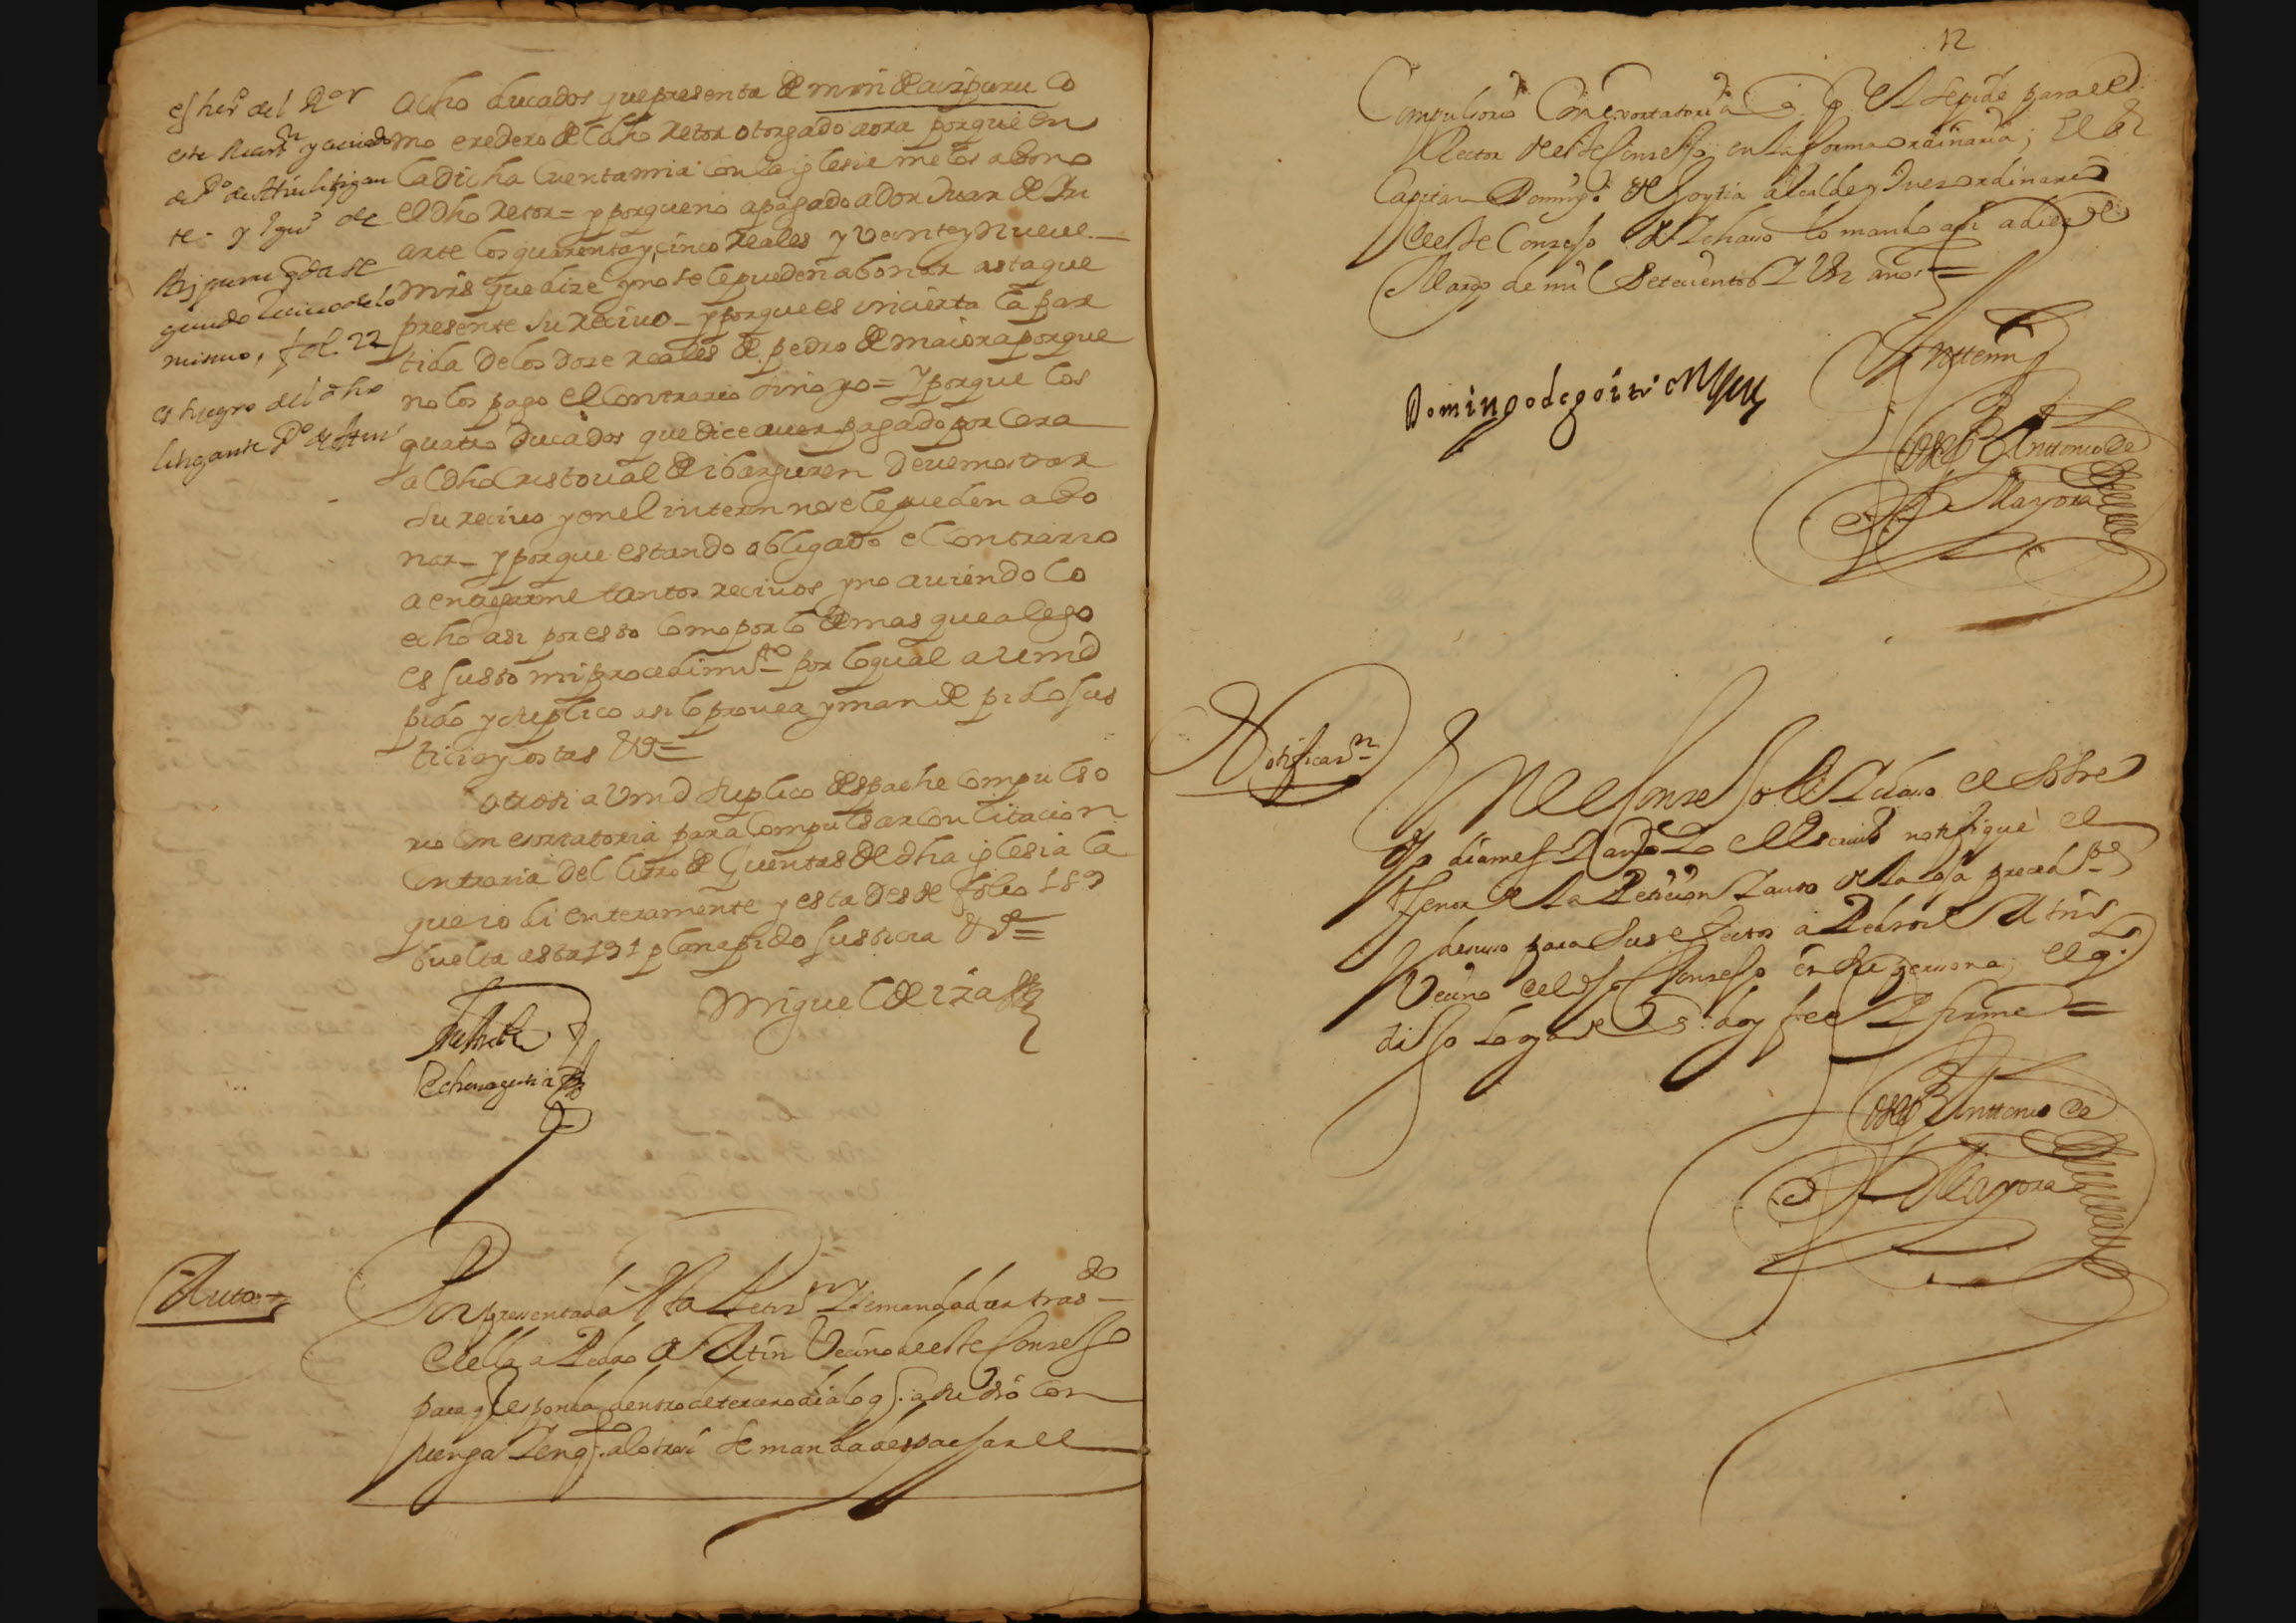 es herº del Ror
este Recivn y criado
de Pº de Atin litigan
te - y
guido
mismo, fol. 22
es suegro del dho
litigante Pº de Atin
ocho ducados que presenta de mrn de aizpuru Co
mo eredero del dho Retor otorgado aora porque en
la dicha Cuenta mia con la iglesia me los abono
el Dho Retor = y porque no a pagado a don Juan de Yri
arte los quarenta y cinco Reales y veinte y nueve
mrs que dize y no se le pueden abonar asta que
presente su Recivo - y porque es incierta la par
tida de los doze reales de pedro de maiora porque
no los pago el Contrario sino yo = y porque los
quatro Ducados que dice aver pagado por Cera
al dho Cristoval de ibarguren deve mostrar
su recivo y en el interin no se le pueden abo
nar - y porque estando obligado el Contrario
a entregarme tantos recivos y no aviendo lo
echo asi por esto Como por lo demas que alego
es justo mi procedimto por lo qual a vmd
pido y suplico asi lo provea y mande pido jus
ticia y costas &a =
otrosi a Vmd suplico despache Compulso
rio Con esortatoria para Compulsar Con citacion
Contraria del libro de Quentas de dha iglesia la
que io di enteramente y esta desde folio 189
buelta asta 191 plana pido justicia &a =
Miguel de iza
Echenagusia
Auto =
Por presentada esta Petizn y se manda dar tras do
de ella a Pedro de Atin Vecino de este Conzejo
para q responda dentro de tercero dia lo q. a su dro Con
benga Y en qto. al otrosi se manda despachar el
12
Compulsorio Con exortatoria q. se pide para el
Rector de este Conzejo en la forma ordinaria; El Sr
Capitan Domingo de Goytia alcalde y Juez ordinario
de este Conzejo de Ichaso lo mando asi a diez de
Marzo de mil Setecientos Y Un años =
Domingo de goitia
Antemi
Joseph Anttonio de
Mayora
Notificazn
En el Conzejo de Ichaso el sobre
dho dia mes Y año Yo el Escrivº notifique el
thenor de la Peticion Y auto de la oja precedte
de suso para sus efectos a Pedro de Atin
Vecino del dho Conzejo en su persona; el q.
dijo lo oya de q. doy fee Y firme =
Joseph Anttonio de
Mayora